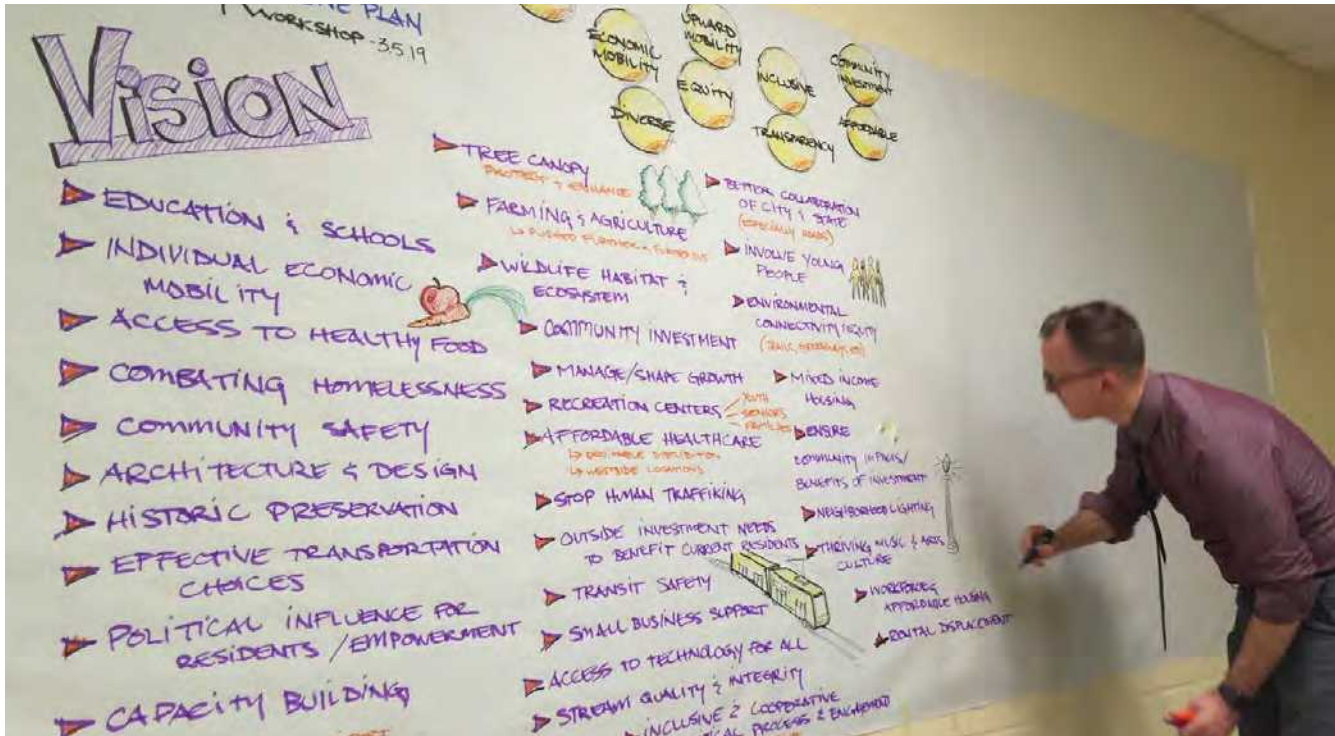 PLAN
WORKSHOP - 3.5.19
VISION
ECONOMIC
MOBILITY
UPWARD
MOBILITY
EQUITY
DIVERSE
INCLUSIVE
TRANSPARENCY
COMMUNITY
INVESTMENT
AFFORDABLE
EDUCATION & SCHOOLS
INDIVIDUAL ECONOMIC
MOBILITY
ACCESS TO HEALTHY FOOD
COMBATING HOMELESSNESS
COMMUNITY SAFETY
ARCHITECTURE & DESIGN
HISTORIC PRESERVATION
EFFECTIVE TRANSPORTATION
CHOICES
POLITICAL INFLUENCE FOR
RESIDENTS / EMPOWERMENT
CAPACITY BUILDING
TREE CANOPY
PROTECT & ENHANCE
FARMING & AGRICULTURE
↳ PUSHED FURTHER &
WILDLIFE HABITAT &
ECOSYSTEM
COMMUNITY INVESTMENT
MANAGE/SHAPE GROWTH
RECREATION CENTERS
YOUTH
SENIORS
FAMILIES
AFFORDABLE HEALTHCARE
↳ WESTSIDE LOCATIONS
STOP HUMAN TRAFFIKING
OUTSIDE INVESTMENT NEEDS
TO BENEFIT CURRENT RESIDENTS
TRANSIT SAFETY
SMALL BUSINESS SUPPORT
ACCESS TO TECHNOLOGY FOR ALL
STREAM QUALITY & INTEGRITY
INCLUSIVE & COOPERATIVE
PROCESS & ENGAGEMENT
BETTER COLLABORATION
OF CITY & STATE
(ESPECIALLY ROADS)
INVOLVE YOUNG
PEOPLE
ENVIRONMENTAL
CONNECTIVITY EQUITY
(TRAILS, GREENWAYS, ETC)
MIXED INCOME
HOUSING
ENSURE
COMMUNITY IMPACTS/
BENEFITS OF INVESTMENT
NEIGHBORHOOD LIGHTING
THRIVING MUSIC & ARTS
CULTURE
WORKFORCE &
AFFORDABLE HOUSING
RENTAL DISPLACEMENT